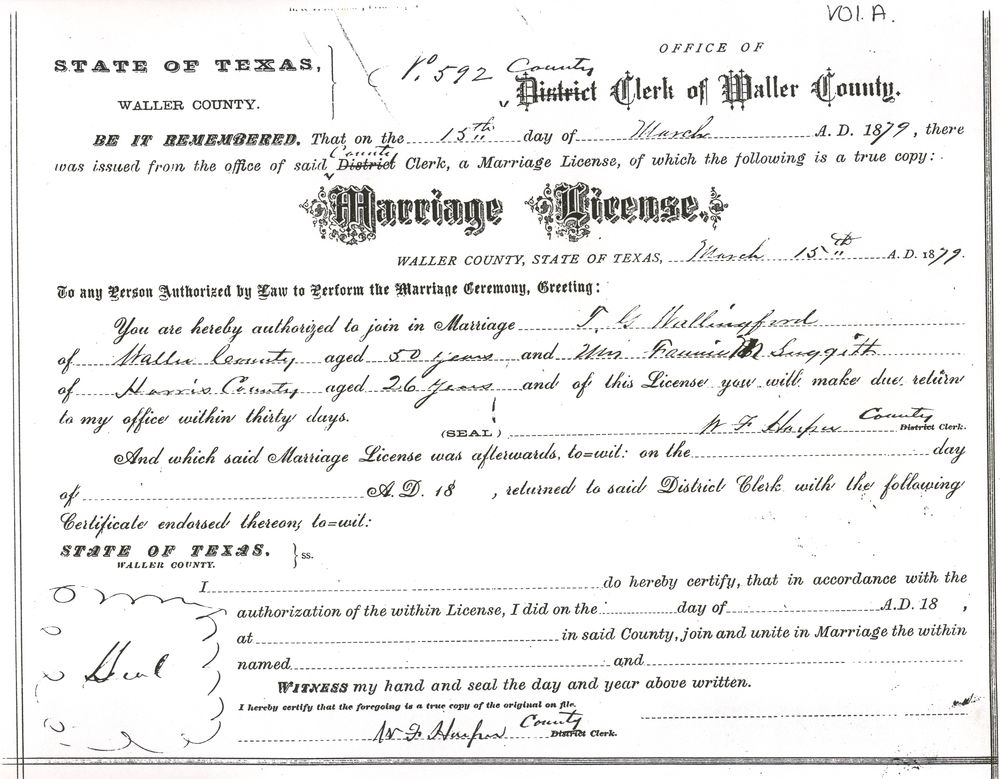 VOl. A.
OFFICE OF
STATE OF TEXAS,
No. 592 County
WALLER COUNTY.
District Clerk of Waller County.
BE IT REMEMBERED, That on the 15th day of March A. D. 1879, there
County
was issued from the office of said District Clerk, a Marriage License, of which the following is a true copy:
Marriage License.
WALLER COUNTY, STATE OF TEXAS, March 15th A. D. 1879.
To any Person Authorized by Law to Perform the Marriage Ceremony, Greeting:
You are hereby authorized to join in Marriage T. G Wallingford
of Waller County aged 50 years and Mrs Fannie M Suggitt
of Harris County aged 26 years and of this License you will make due return
to my office within thirty days.
(SEAL) W F Harper County District Clerk.
And which said Marriage License was afterwards, to=wit: on the day
of A. D. 18 , returned to said District Clerk with the following
Certificate endorsed thereon; to=wit:
STATE OF TEXAS. ss.
WALLER COUNTY.
I do hereby certify, that in accordance with the
authorization of the within License, I did on the day of A.D. 18 ,
at in said County, join and unite in Marriage the within
named and
Seal
WITNESS my hand and seal the day and year above written.
I hereby certify that the foregoing is a true copy of the original on file.
W F Harper County District Clerk.